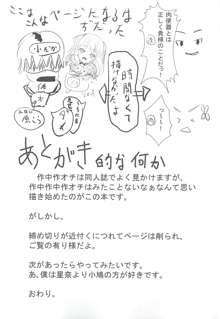 ここはこんなページになるはずだった
小だか
時間なくて描けなかったよ
肉便器とは
正しく貴様のことだっ
っ～～
あとがき的な何か
作中作オチは同人誌でよく見かけますが、
作中作中作オチはみたことないなぁなんて思い
描き始めたのがこの本です。
がしかし。
締め切りが近付くにつれてページは削られ、
ご覧の有り様だよ。
次があったらやってみたいです。
あ、僕は星奈より小鳩の方が好きです。
おわり。